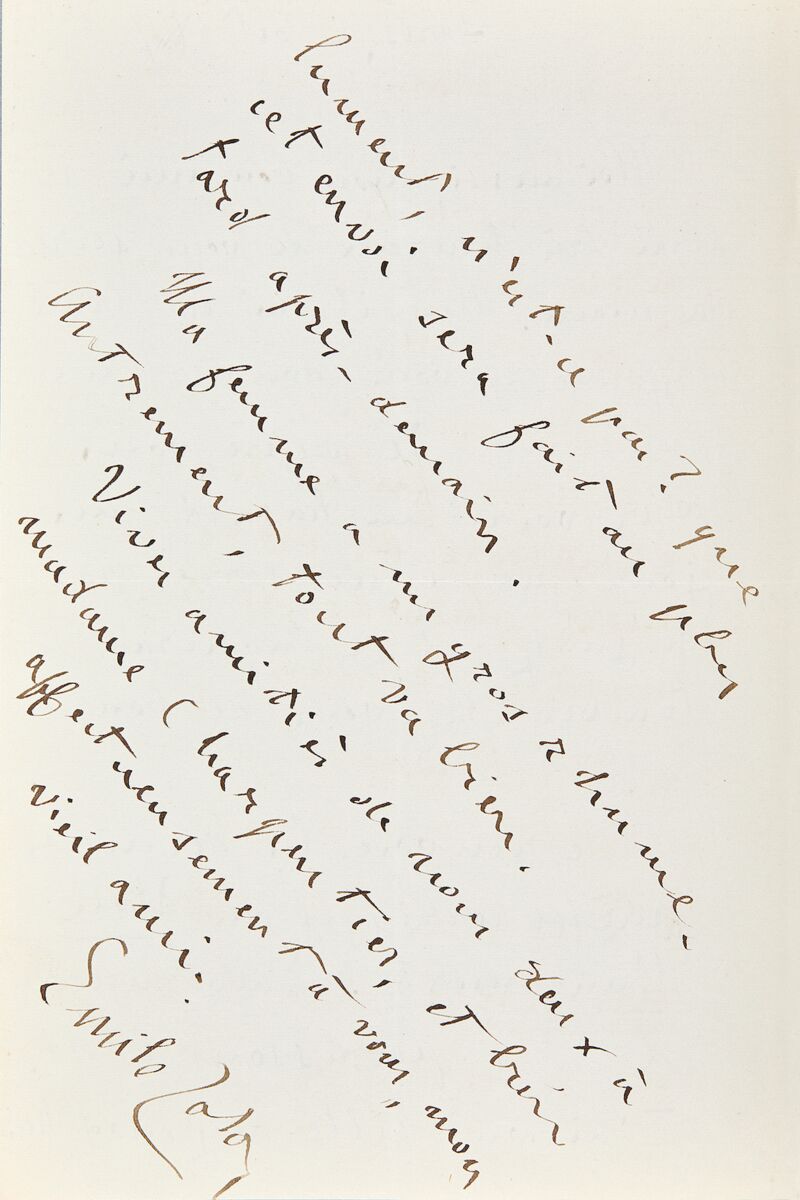 lument, n'est-ce pas? que
cet envoi sera fait au plus
tard après-demain.
Ma femme a un gros rhume.
Autrement, tout va bien.
Vives amitiés de nous deux à
madame Charpentier, et bien
affectueusement à vous, mon
vieil ami.
Emile Zola